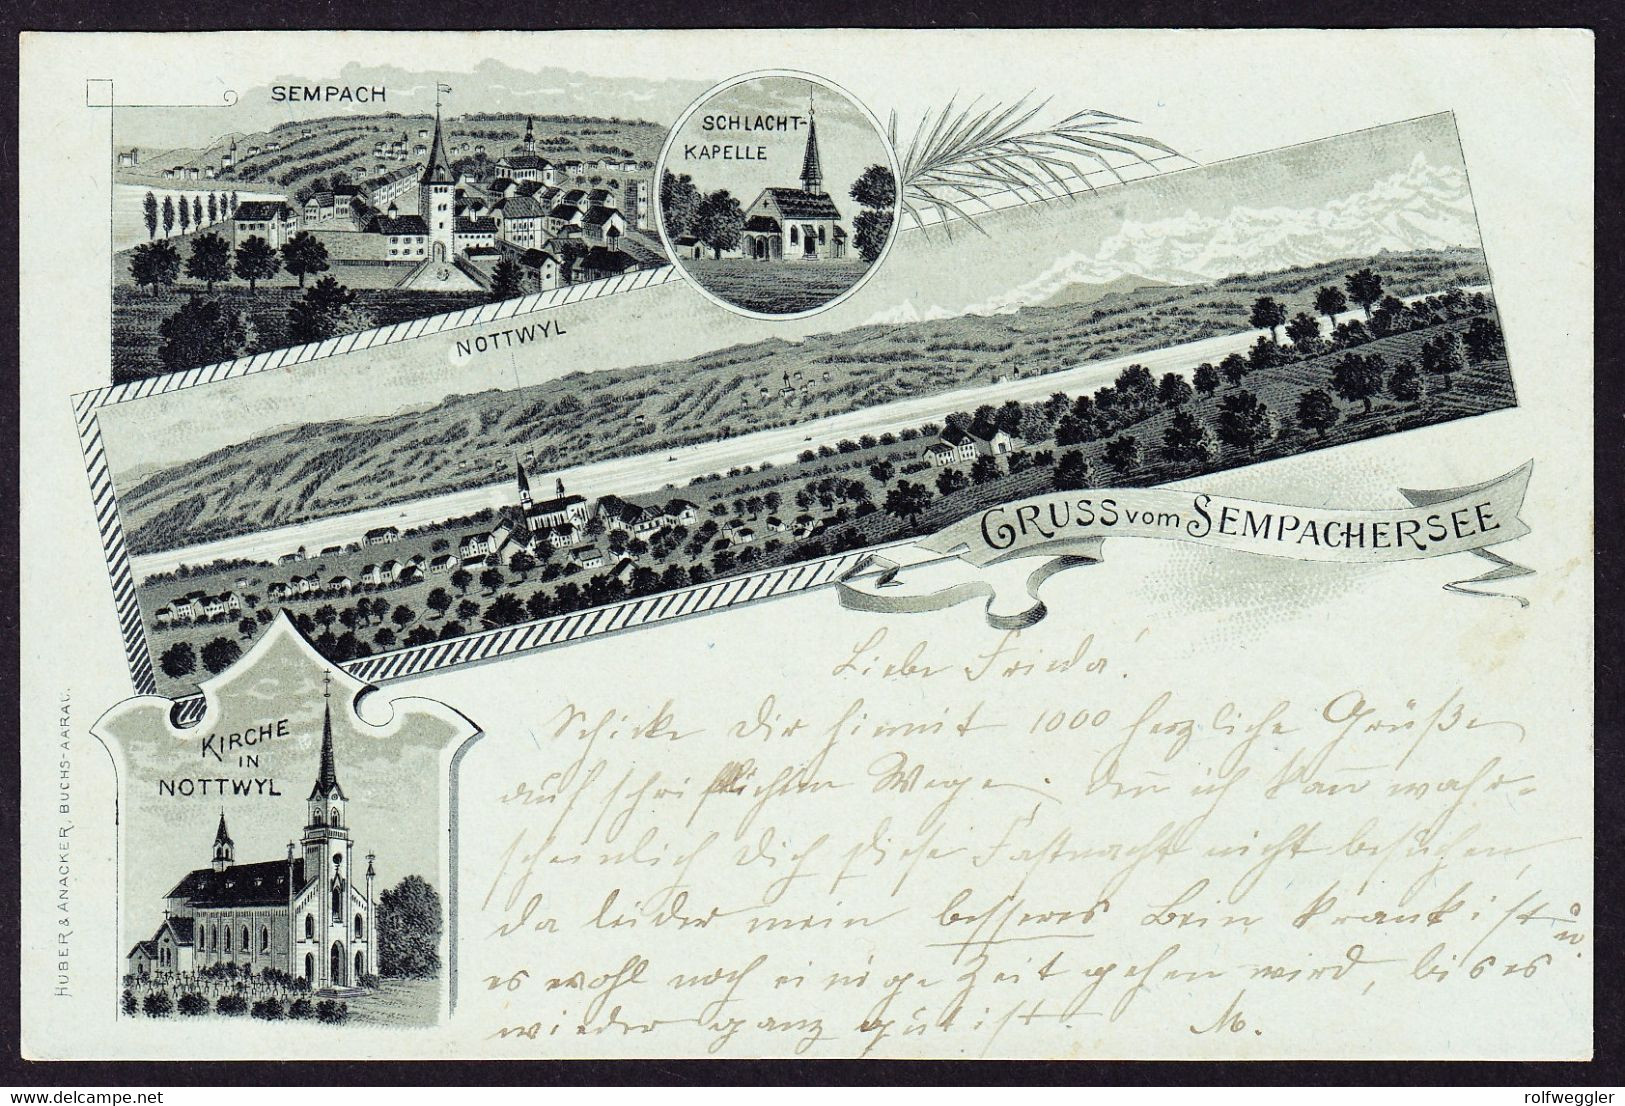 SEMPACH
SCHLACHT-
KAPELLE
NOTTWYL
GRUSS VOM SEMPACHERSEE
KIRCHE
IN
NOTTWYL
HUBER & ANACKER, BUCHS-AARAU.
Liebe Frieda!
Schicke Dir hiemit 1000 herzliche Grüße
auf schriftlichen Wege. Den̄ ich kan̄ wahr-
scheinlich Dich diese Fastnacht nicht besuchen,
da leider mein besseres Bein krank ist u.
es wohl noch einige Zeit gehen wird, bis es
wieder ganz gut ist. M.
delcampe.net
rolfweggler